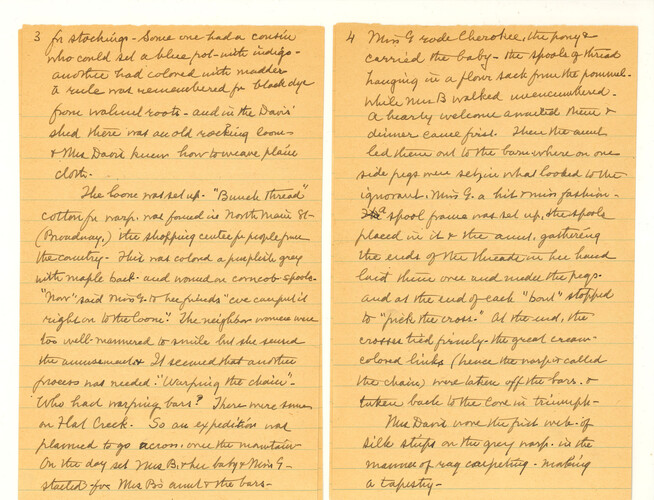 3 for stockings - Some one had a cousin
who could set a blue pot - with indigo -
another had colored with madder
a rule was remembered for black dye
from walnut roots - and in the Davis'
shed there was an old rocking loom
& Mrs Davis knew how to weave plain
cloth.
The loom was set up - "Bunch thread"
cotton for warp, was found in North Main St -
(Broadway,) the shopping centre for people from
the country - This was colored a purplish gray
with maple bark - and wound on corncob spools -
"Now" said Miss G. to her friends "we can put it
right on to the loom". The neighbor women were
too well-mannered to smile but she sensed
the amusement & It seemed that another
process was needed. "Warping the chain" -
Who had warping bars? There were some
on Flat Creek. So an expedition was
planned to go across, over the mountain
On the day set Mrs B. & her baby & Miss G -
started for Mrs B's aunt & the bars -
4 Miss G rode Cherokee, the pony &
carried the baby - the spools of thread
hanging in a flour sack from the pommel -
while Mrs B walked unencumbered -
A hearty welcome awaited them &
dinner came first. Then the aunt
led them out to the barn where on one
side pegs were set, in what looked to the
ignorant, Miss G. a hit & miss fashion -
a spool frame was set up, the spools
placed in it & the aunt, gathering
the ends of the threads in her hand
laid them over and under the pegs -
and at the end of each "bout" stopped
to "pick the cross." At the end, the
crosses tied firmly - the great cream-
colored links (hence the warp is called
the chain) were taken off the bars - &
taken back to the Cove in triumph -
Mrs Davis wove the first web - of
silk strips on the grey warp - in the
manner of rag carpeting - making
a tapestry -